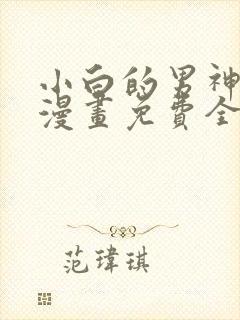 小白的男神
漫畫免費全
范瑋琪